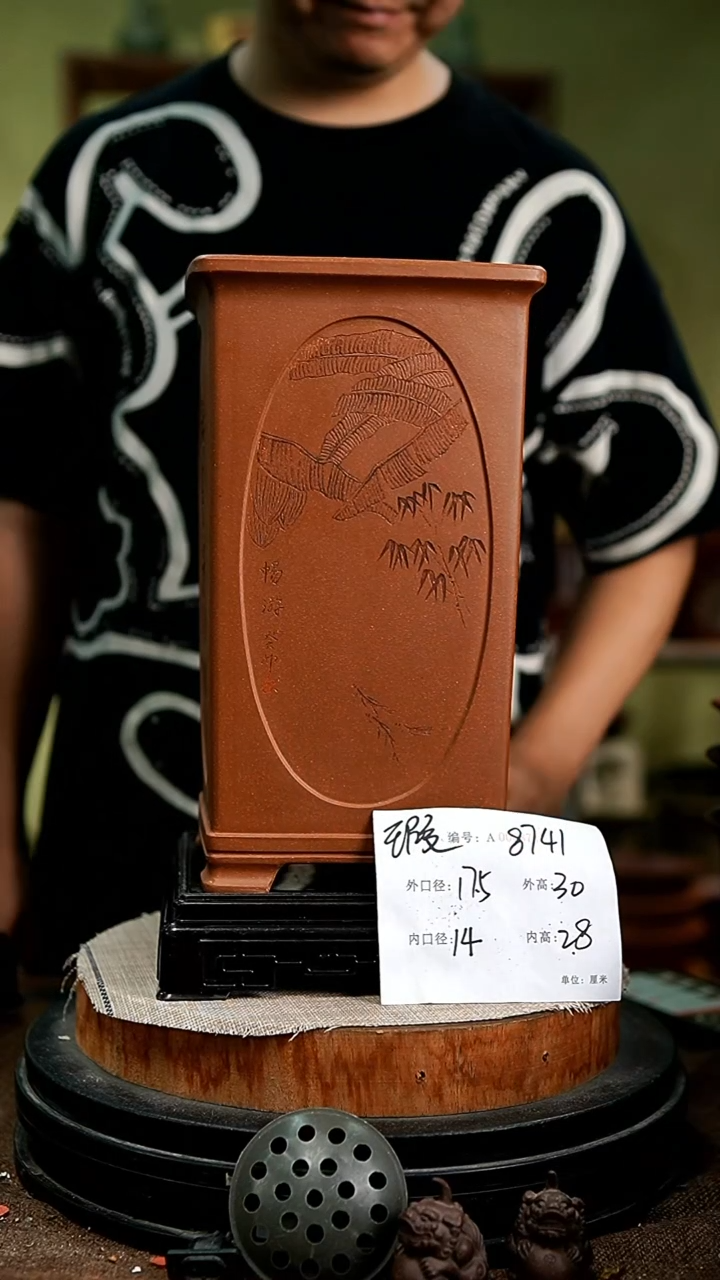 畅
游
癸
卯
编号: A 8741
外口径: 17.5 外高: 30
内口径: 14 内高: 28
单位: 厘米